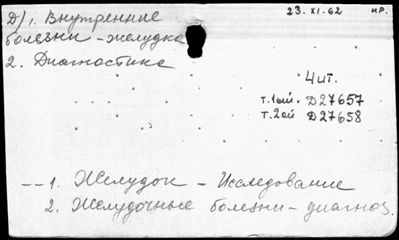 Д/1. Внутренние
23.XI.62 нр.
болезни - желудка
2. Диагностика
4 ит.
т.1ый. Д27657
т.2ой Д27658
-- 1. Желудок - Исследование
2. Желудочные болезни - диагноз.